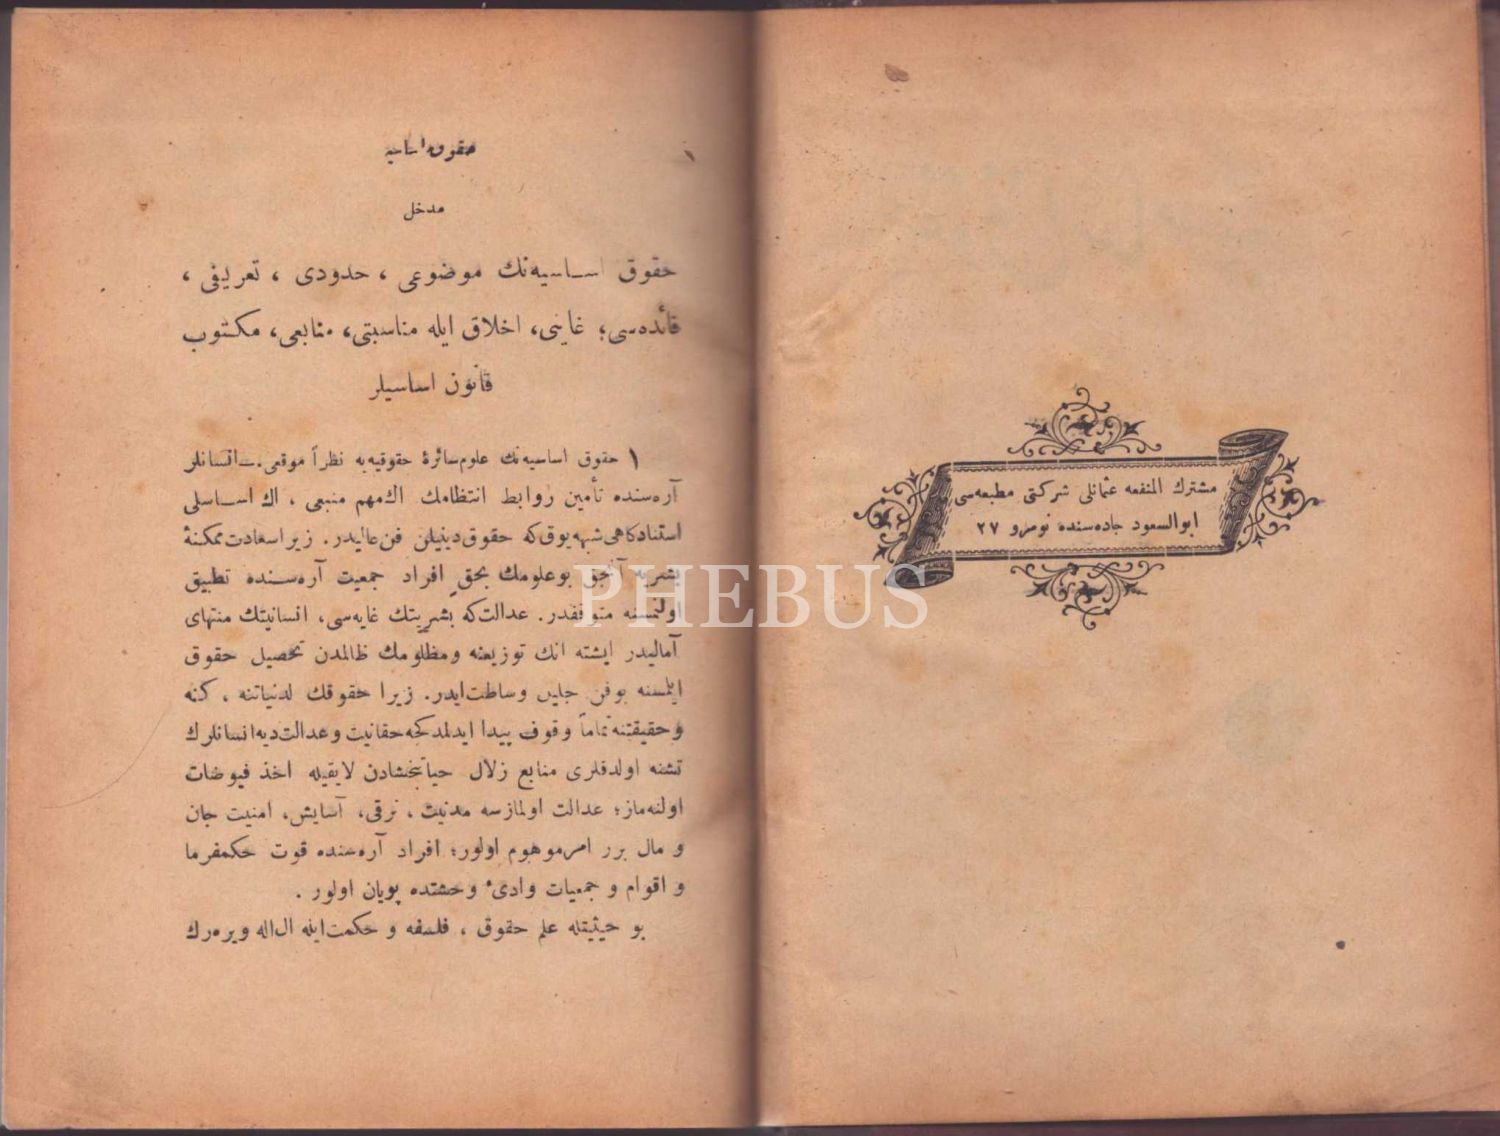 مشترك المنفعه عثمانلی شركتی مطبعه‌سی
ابوالسعود جاده‌سنده نومرو ٢٧
حقوق اساسیه
مدخل
حقوق اساسیه‌نك موضوعی ، حدودی ، تعریفی ،
فائده‌سی؛ غایتی، اخلاق ایله مناسبتی، منابعی، مكتوب
قانون اساسیلر
١ حقوق اساسیه‌نك علوم سائرهٔ حقوقیه‌یه نظراً موقعی. — انسانلر
آره‌سنده تأمین روابط انتظامك اك مهم منبعی ، اك اساسلی
استنادكاهی شبهه یوق كه حقوق دینیلن فن عالیدر. زیرا سعادت ممكنهٔ
بشریه آنجق بو علومك بحق افراد جمعیت آره‌سنده تطبیق
اولنمسنه متوقفدر. عدالت كه بشریتك غایه‌سی، انسانیتك منتهای
آمالیدر ایشته انك توزیعنه و مظلومك ظالمدن تحصیل حقوق
ایلمسنه بو فن جلیل وساطت ایدر. زیرا حقوقك لدنیاتنه ، كنه
و حقیقتنه تماماً وقوف پیدا ایدلمدكجه حقانیت و عدالت دیه انسانلرك
تشنه اولدقلری منابع زلال حیاتبخشادن لایقیله اخذ فیوضات
اولنه‌ماز؛ عدالت اولمازسه مدنیت ، ترقی، آسایش، امنیت جان
و مال برر امر موهوم اولور؛ افراد آره‌سنده قوت حكمفرما
و اقوام و جمعیات وادیٔ وحشتده پویان اولور .
بو حیثیتله علم حقوق ، فلسفه و حكمت ایله ال اله ویره‌رك
PHEBUS